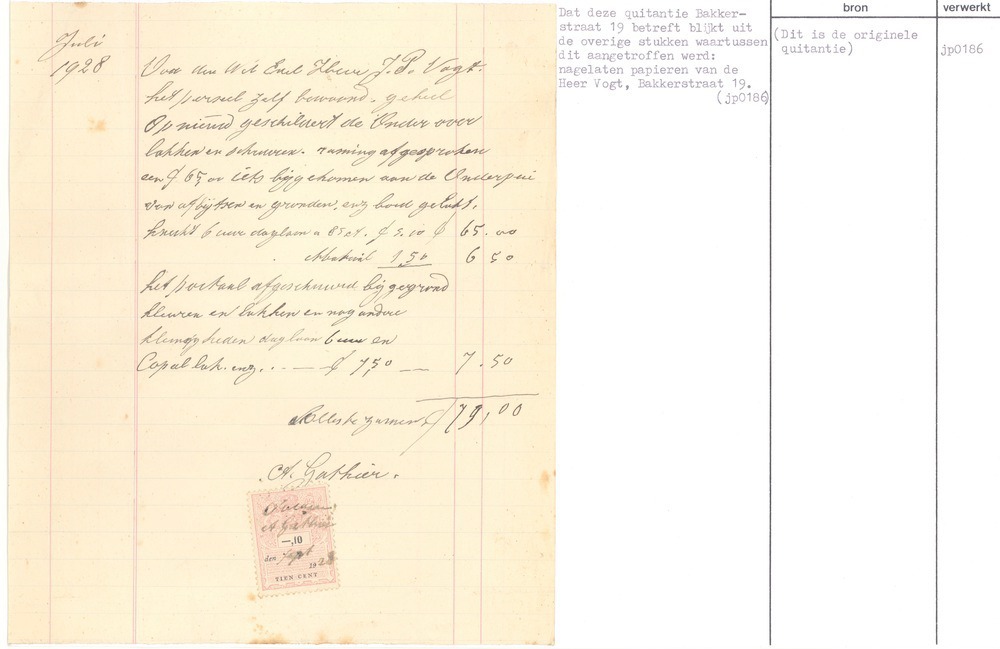 Juli
1928
Voor den Wel Edel Heer J. P. Vogt.
het perceel zelf bewoond. geheel
Op nieuw geschildert de Onder voor
lakken en schuuren. raming afgesproken
een ƒ 65,00 iets bijgekomen aan de Onderpui
van afbijtsen en gronden, enz
knecht 6 uur dagloon a 85 ct. ƒ 5.10 ƒ 65.00
Matriaal 1,50 6 50
het portaal afgeschuurd bijgegrond
kleuren en lakken en nog andere
kleinigheden dagloon 6 uur en
Copal lak. enz. . - — ƒ 7,50 — 7.50
Alles te zamen ƒ 79,00
A. Gathier.
Voldaan
A Gathier
—,10
den Sept 1928
TIEN CENT
Dat deze quitantie Bakker-
straat 19 betreft blijkt uit
de overige stukken waartussen
dit aangetroffen werd:
nagelaten papieren van de
Heer Vogt, Bakkerstraat 19.
(jp0186)
bron
(Dit is de originele
quitantie)
verwerkt
jp0186